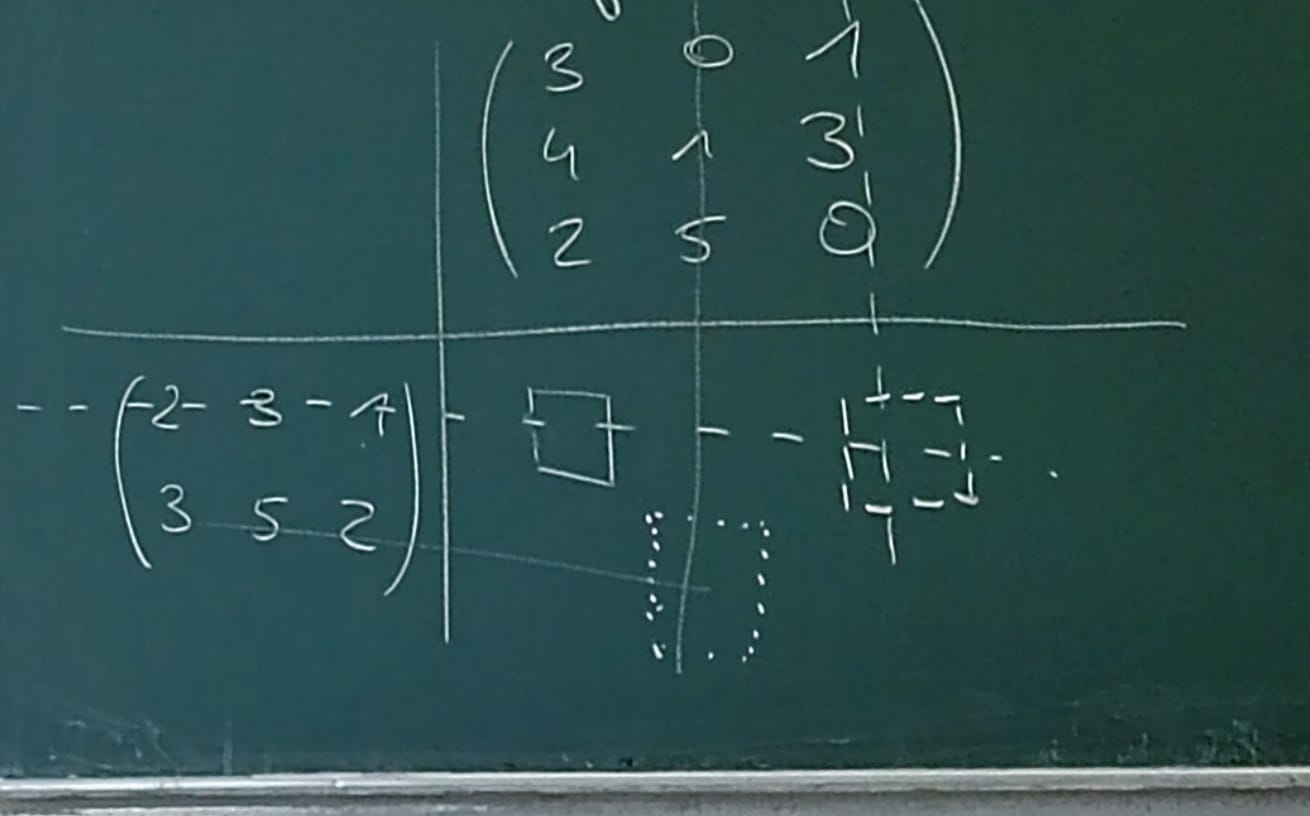 3 0 1
4 1 3
2 5 0
2 3 1
3 5 2